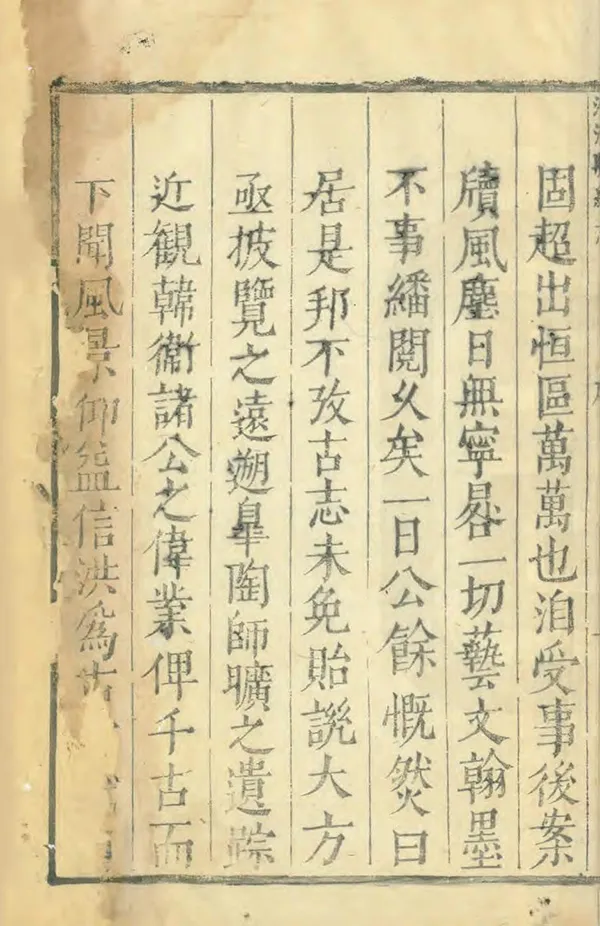 固超出恒區萬萬也洎受事後案
牘風塵日無寧晷一切藝文翰墨
不事繙閱久矣一日公餘慨然曰
居是邦不攷古志未免貽誚大方
亟披覽之遠遡皋陶師曠之遺踪
近觀韓衛諸公之偉業俾千古而
下聞風景仰益信洪爲古